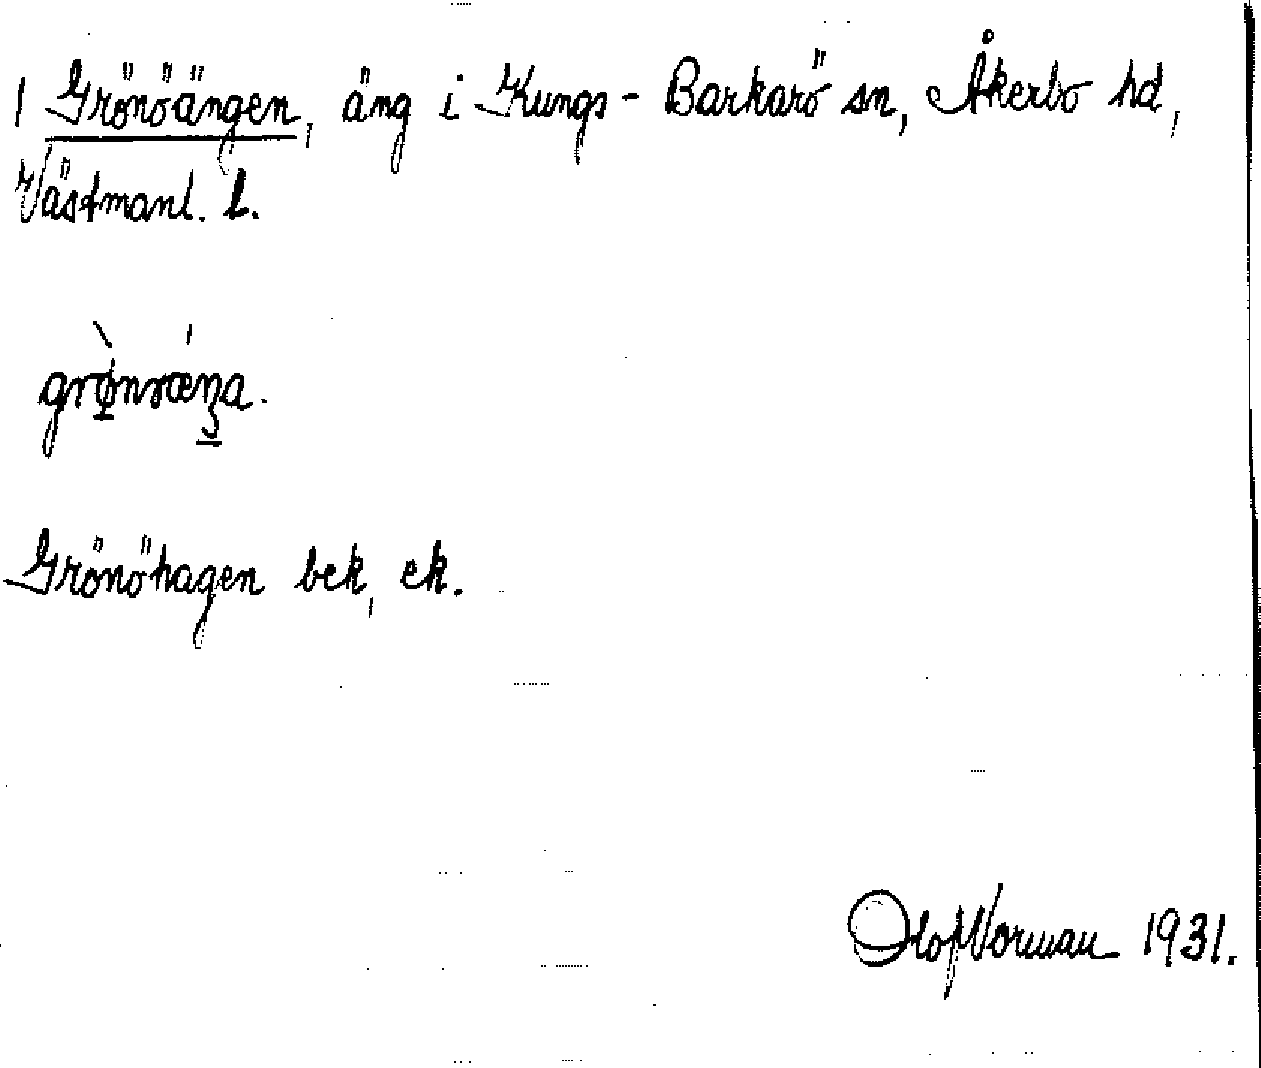 1 Grönöängen, äng i Kungs-Barkarö sn, Åkerbo hd,
Västmanl. l.
Grönöhagen bek, ek.
Olof Norman 1931.